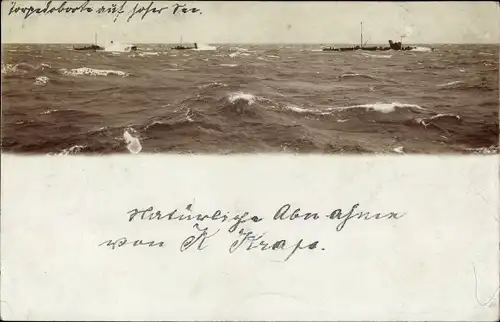 Torpedoboote auf hoher See.
Natürliche Abnahme
von K Krapf.